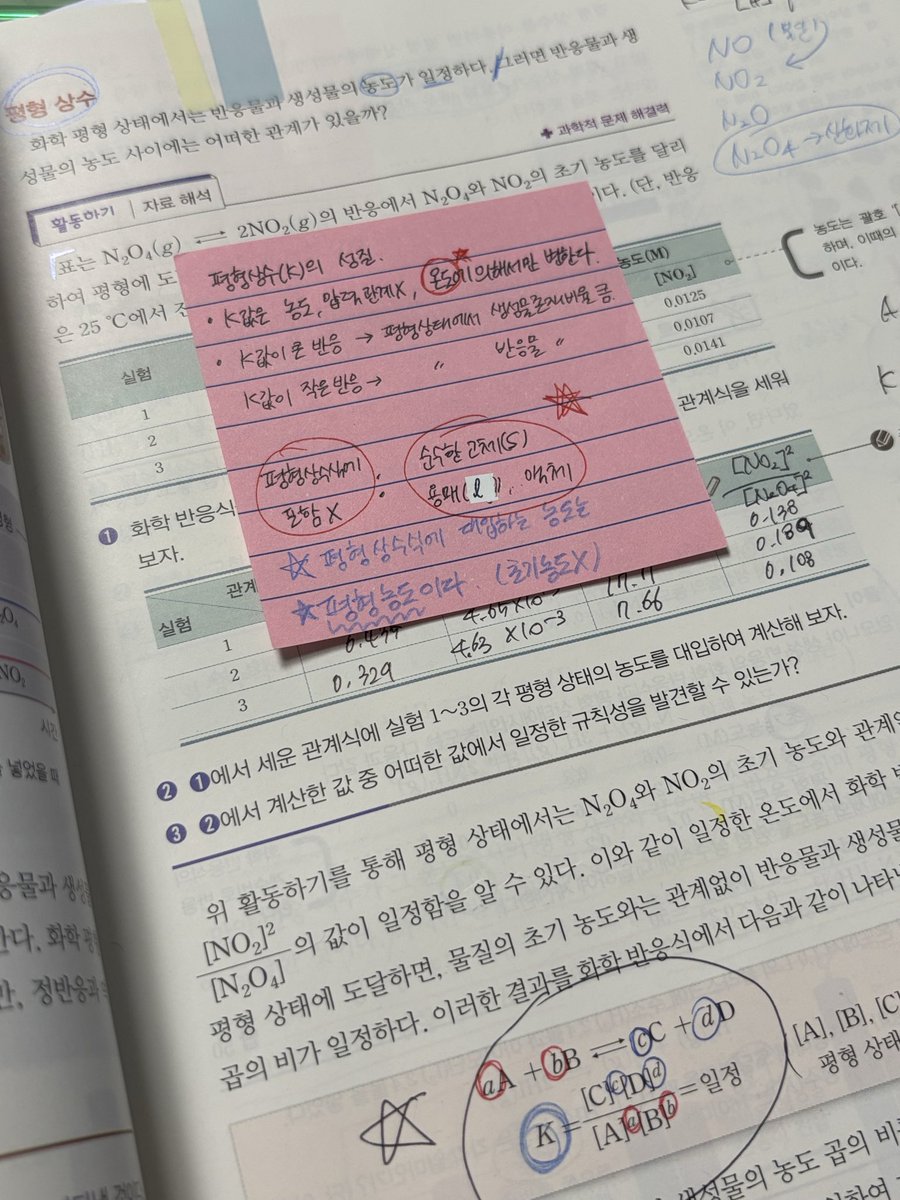 평형 상수
화학 평형 상태에서는 반응물과 생성물의 농도가 일정하다. 그러면 반응물과 생
성물의 농도 사이에는 어떠한 관계가 있을까?
+ 과학적 문제 해결력
NO
NO₂
N₂O
N₂O₄ → 산화제
활동하기 | 자료 해석
표는 N₂O₄(g) ⇄ 2NO₂(g)의 반응에서 N₂O₄와 NO₂의 초기 농도를 달리
하여 평형에 도
이다. (단, 반응
은 25 ℃에서
농도는 괄호
하며, 이때의
이다.
농도(M)
실험
[NO₂]
1
0.0125
2
0.0107
3
0.0141
평형상수(K)의 성질.
• K값은 농도, 압력 관계X, 온도에 의해서만 변한다.
• K값이 큰 반응 → 평형상태에서 생성물 존재비율 큼.
K값이 작은 반응 → 〃 반응물 〃
평형상수식에
포함 X
• 순수한 고체(s)
용매(l), 액체
☆ 평형상수식에 대입하는 농도는
★ 평형농도이다 (초기농도X)
❶ 화학 반응식
관계식을 세워
보자.
실험
관계
[NO₂]²
[N₂O₄]²
1
0.138
2
0.329
4.63 ×10⁻³
7.66
0.108
3
❷ ❶에서 세운 관계식에 실험 1~3의 각 평형 상태의 농도를 대입하여 계산해 보자.
❸ ❷에서 계산한 값 중 어떠한 값에서 일정한 규칙성을 발견할 수 있는가?
위 활동하기를 통해 평형 상태에서는 N₂O₄와 NO₂의 초기 농도와 관계없
[NO₂]²
[N₂O₄]
의 값이 일정함을 알 수 있다. 이와 같이 일정한 온도에서 화학
평형 상태에 도달하면, 물질의 초기 농도와는 관계없이 반응물과 생성물
곱의 비가 일정하다. 이러한 결과를 화학 반응식에서 다음과 같이 나타
aA + bB ⇄ cC + dD
K = [C]ᶜ[D]ᵈ / [A]ᵃ[B]ᵇ = 일정
[A], [B], [C]
평형 상태
생성물의 농도 곱의 비
시간
넣었을 때